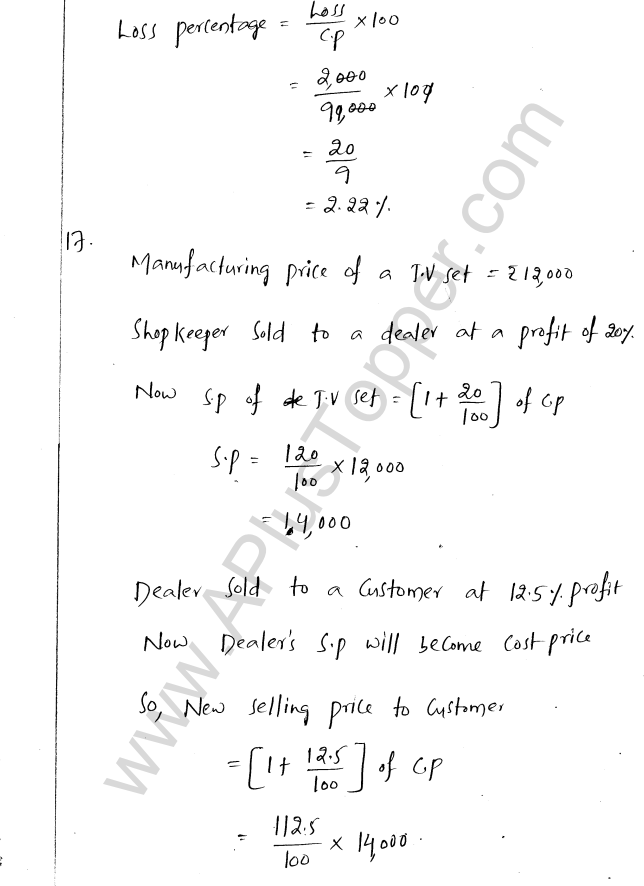 Loss percentage = Loss/C.p × 100
= 2,000/90,000 × 100
= 20/9
= 2.22%.
17.
Manufacturing price of a T.V set = ₹12,000
Shopkeeper Sold to a dealer at a profit of 20%.
Now S.p of T.V set = [1 + 20/100] of C.p
S.p = 120/100 × 12,000
= 14,000
Dealer Sold to a Customer at 12.5% profit
Now Dealer's S.p will become cost price
So, New selling price to Customer
= [1 + 12.5/100] of C.P
= 112.5/100 × 14,000.
www.APlusTopper.com